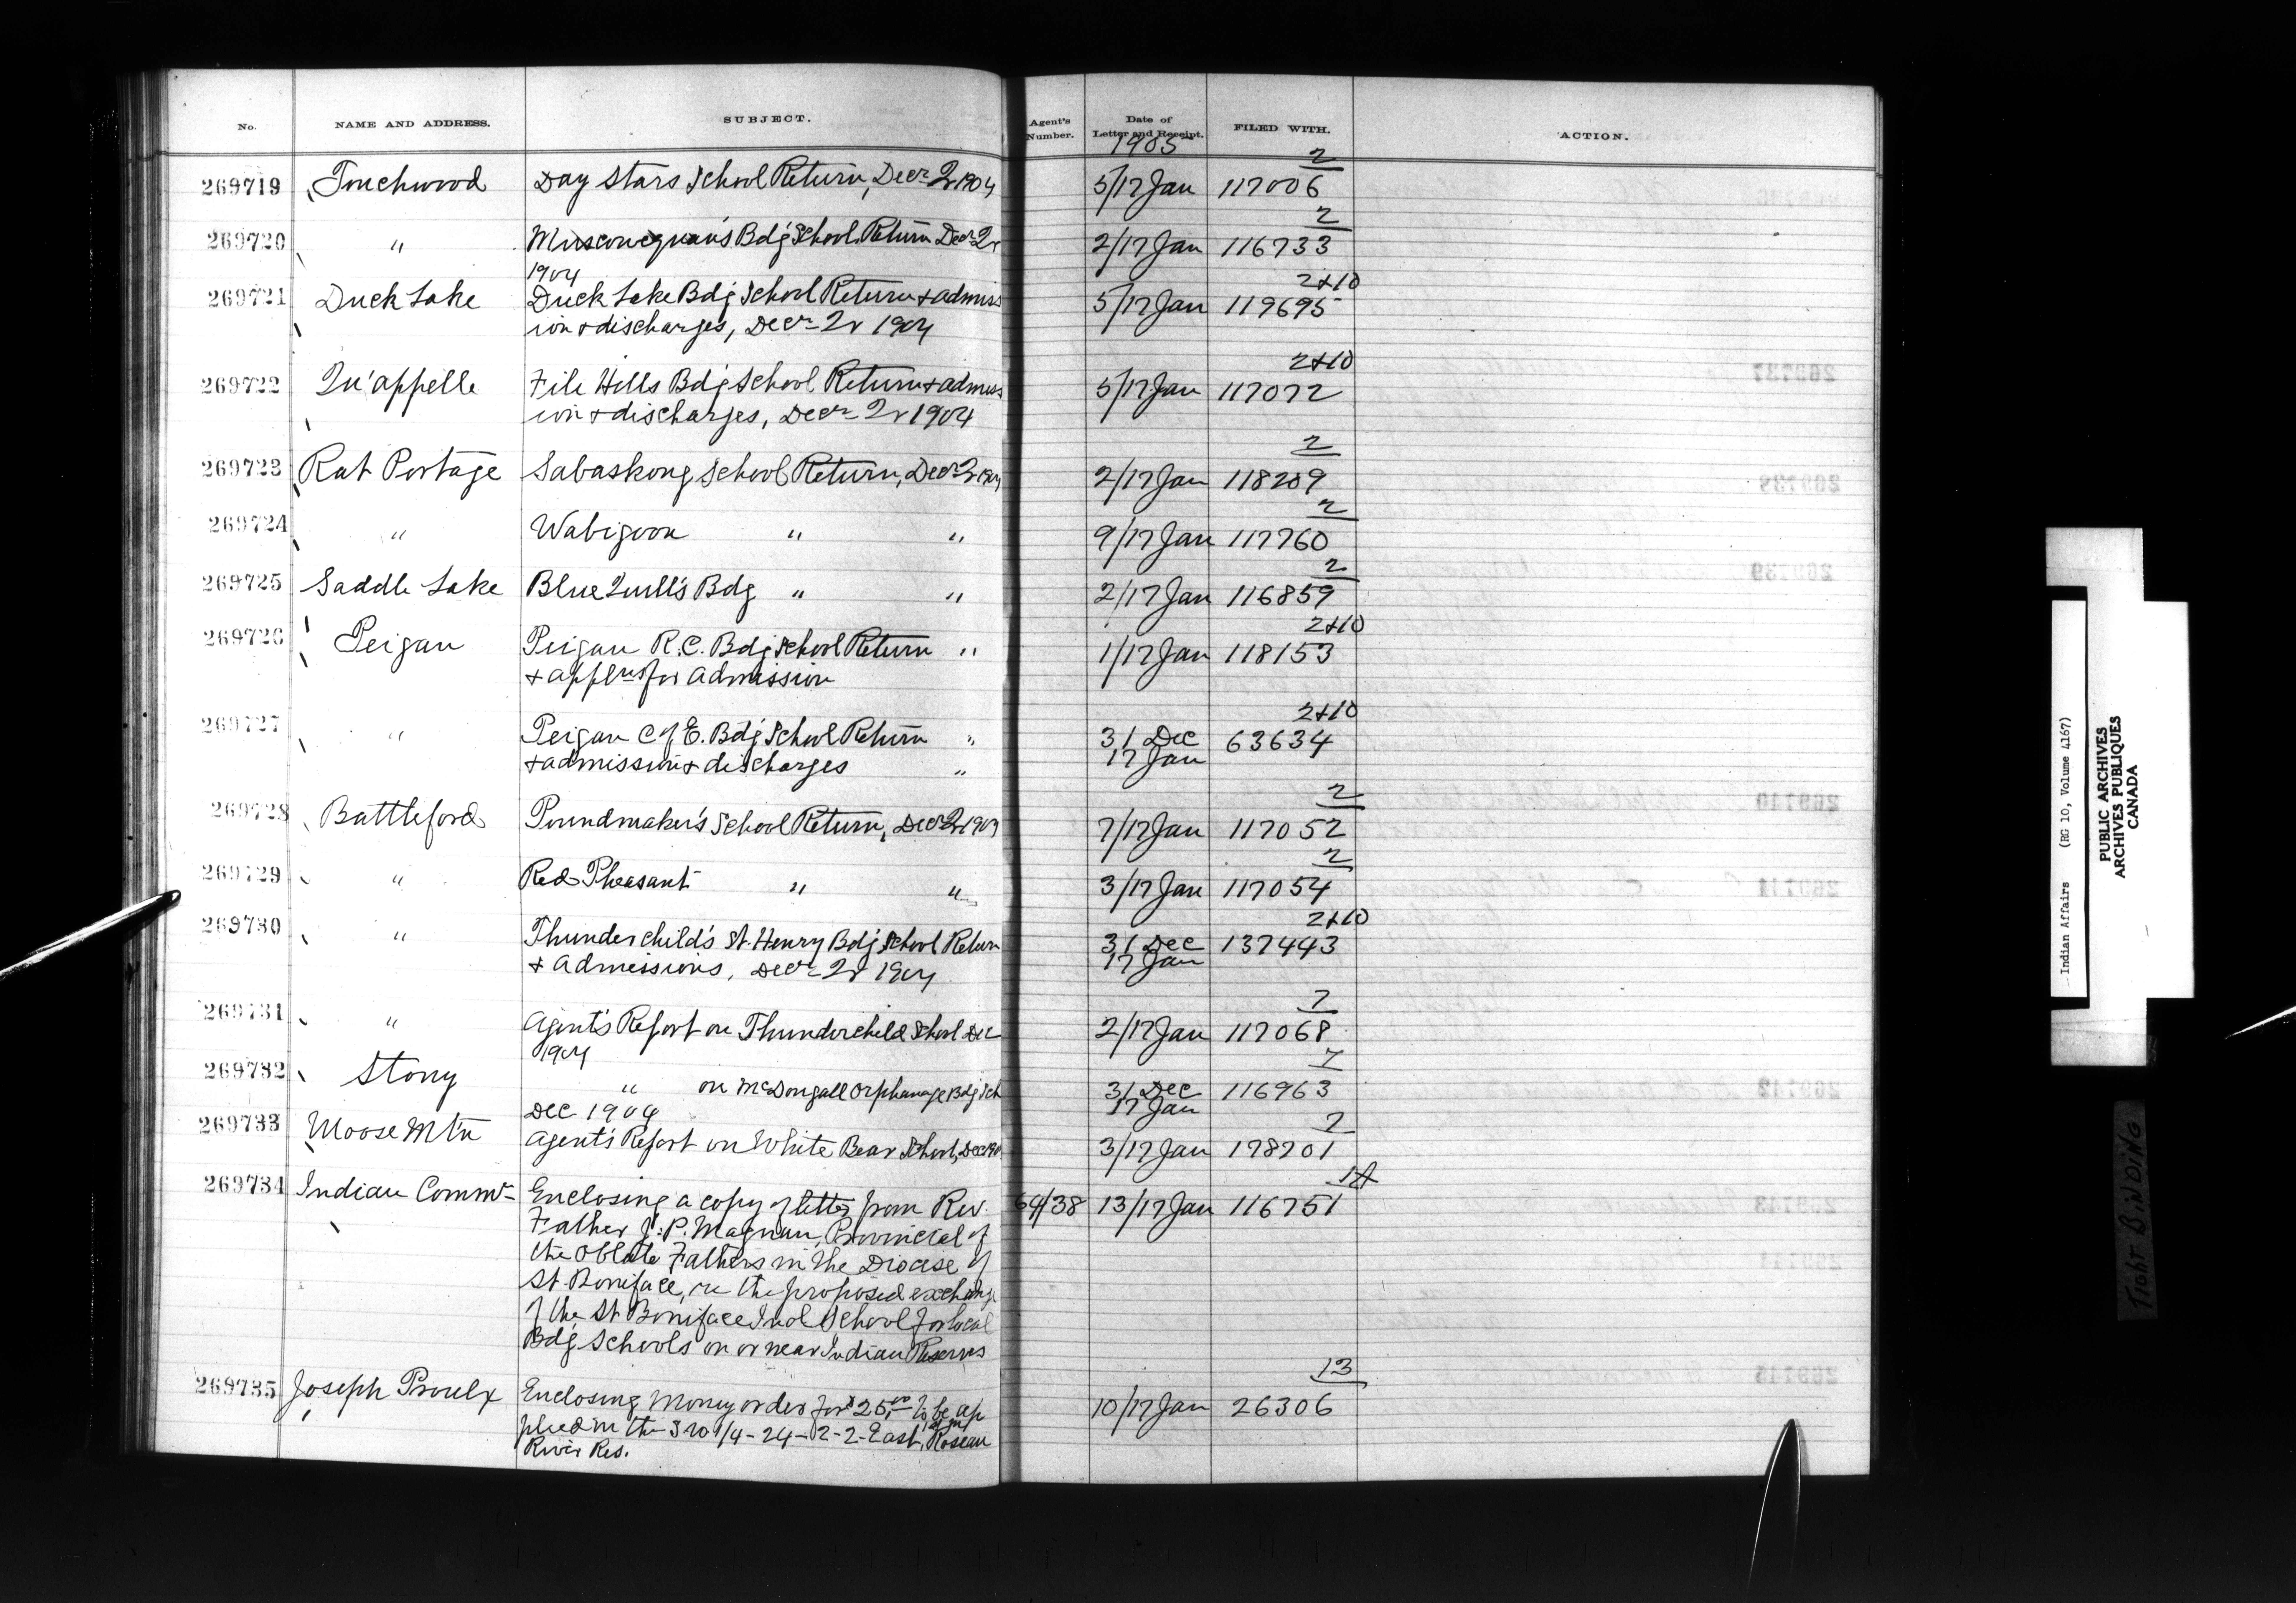 No. NAME AND ADDRESS. SUBJECT. Agent's Number. Date of Letter and Receipt. FILED WITH. ACTION.
1905
2
269719 Touchwood Day Stars School Return, Decr Qr 1904 5/17 Jan 117006
2
269720 " Muscowequan's Bdg School Return Decr Qr 2/17 Jan 116733
1904
2+10
269721 Duck Lake Duck Lake Bdg School Return + admiss 5/17 Jan 119695
ion + discharges, Decr Qr 1904
2+10
269722 Qu'appelle File Hills Bdg School Return + admiss 5/17 Jan 117072
ion + discharges, Decr Qr 1904
2
269723 Rat Portage Sabaskong School Return, Decr Qr 1904 2/17 Jan 118209
2
269724 " Wabigoon " " 9/17 Jan 117760
2
269725 Saddle Lake Blue Quill's Bdg " " 2/17 Jan 116859
2+10
269726 Peigan Peigan R.C. Bdg School Return " 1/17 Jan 118153
+ applns for admission
2+10
269727 " Peigan C of E. Bdg School Return " 31 Dec 63634
+ admission + discharges " 17 Jan
2
269728 Battleford Poundmaker's School Return, Decr Qr 1904 7/17 Jan 117052
2
269729 " Red Pheasant " " 3/17 Jan 117054
2+10
269730 " Thunderchild's St. Henry Bdg School Return 31 Dec 137443
+ admissions, Decr Qr 1904 17 Jan
7
269731 " Agent's Report on Thunderchild School Dec 2/17 Jan 117068
1904
7
269732 Stony " on McDougall Orphanage Bdg Sch 31 Dec 116963
Dec 1904 17 Jan
7
269733 Moose Mtn Agent's Report on White Bear School, Dec 190 3/17 Jan 178701
1A
269734 Indian Commr Enclosing a copy of letter from Rev. 64/38 13/17 Jan 116751
Father J. P. Magnan, Provincial of
the Oblate Fathers in the Diocese of
St. Boniface, re the proposed exchange
of the St Boniface Indl School for local
Bdg Schools on or near Indian Reserves
13
269735 Joseph Proulx Enclosing Money order for $25.00 to be ap 10/17 Jan 26306
plied on the S W 1/4 - 24 - 2 - 2 - East, Roseau
River Res.
269737
269738
269739
269740
269741
269742
269743
269744
269745
Indian Affairs (RG 10, Volume 4167)
PUBLIC ARCHIVES
ARCHIVES PUBLIQUES
CANADA
TIGHT BINDING